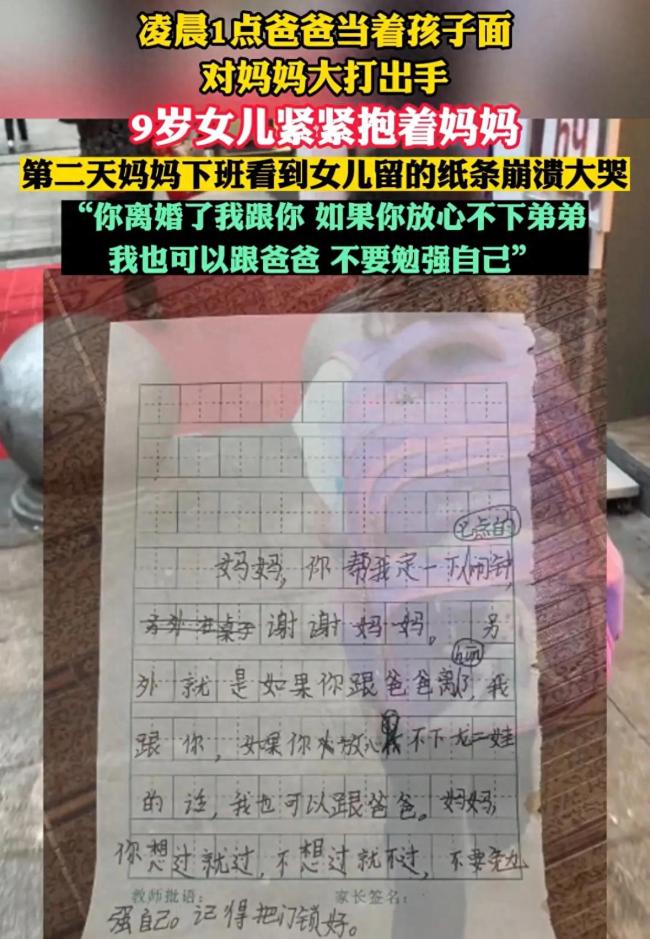 凌晨1点爸爸当着孩子面
对妈妈大打出手
9岁女儿紧紧抱着妈妈
第二天妈妈下班看到女儿留的纸条崩溃大哭
“你离婚了我跟你 如果你放心不下弟弟
我也可以跟爸爸 不要勉强自己”
点的
妈妈，你帮我定一下闹钟，
另外在桌子谢谢妈妈。另
hūn
外就是如果你跟爸爸离了，我
跟你，如果你放心不下龙二娃
的话，我也可以跟爸爸。妈妈，
你想过就过，不想过就不过，不要勉
教师批语： 家长签名：
强自己。记得把门锁好。